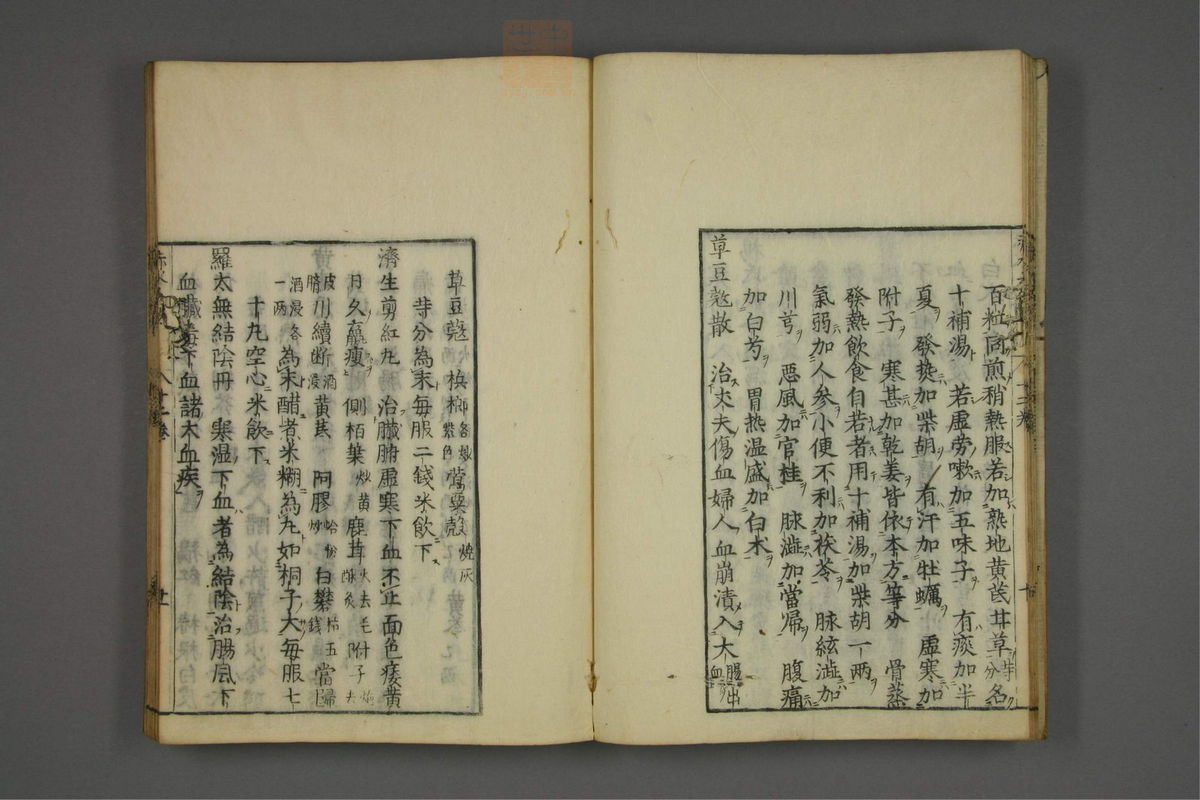 百粒同煎稍熱服若加熟地黄芪甘草各等分
十補湯　若虚劳嗽加五味子　有痰加半
夏　發热加柴胡　有汗加牡蠣　虚寒加
附子　寒甚加乾姜皆依本方等分　骨蒸
發熱飲食自若者用十補湯加柴胡一两
氣弱加人参小便不利加茯苓　脉絃澁加
川芎　惡風加官桂　脉澁加當帰　腹痛
加白芍　胃热温盛加白术
草豆蔲散　治丈夫傷血婦人血崩漬入大腸出血
草豆蔲　梹榔各炒紫色　鶯粟殻燒灰
等分為末毎服二錢米飲下
濟生剪紅丸　治臓腑虚寒下血不止面色痿黄
日久羸瘦　側栢葉炒黄　鹿茸火去毛　附子炮去
皮臍　川續断酒浸　黄芪　阿膠蛤粉炒　白礬枯五錢　當歸
酒浸各一两　為末醋煮米糊為丸如桐子大毎服七
十九空心米飲下
羅太無結陰丹　寒湿下血者為結陰治腸風下
血臓毒下血諸大血疾